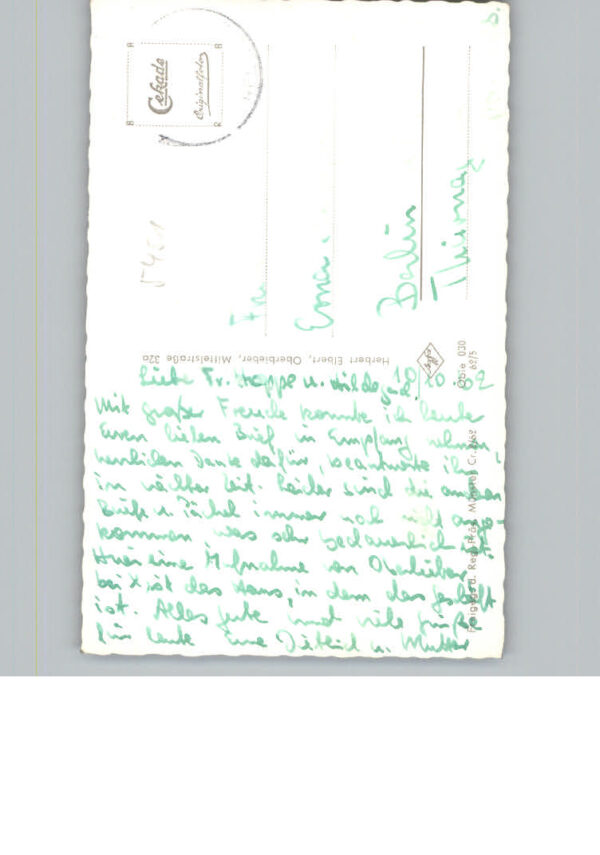 Cekade
Originalfoto
Berlin
Herbert Elbert, Oberbieber, Mittelstraße 32a
Obie 030
62/5
Liebe Fr. Hoppe u. Hildegard
Mit großer Freude konnte ich heute
Euren lieben Brief in Empfang nehmen,
herzlichen Dank dafür, beantworte ihn
in nächster Zeit. Leider sind die anderen
Briefe u. Päckel immer noch nicht ange-
kommen, was sehr bedauerlich ist.
Hier eine Aufnahme von Oberbieber
bei X ist das Haus, in dem das Geschäft
ist. Alles Gute und viele Grüße
für heute Eure Dietrich u. Mutter